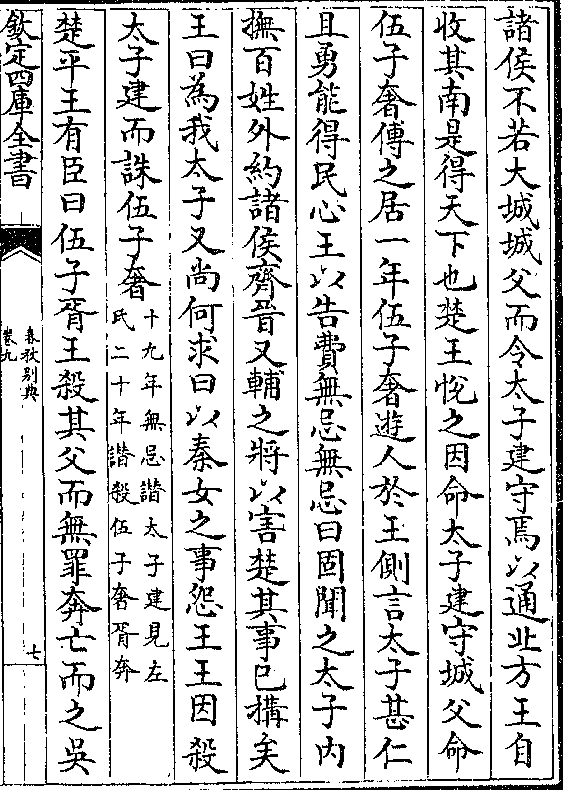 諸侯不若大城城父而令太子建守焉以通北方王自
收其南是得天下也楚王悅之因命太子建守城父命
伍子奢傅之居一年伍子奢遊人於王側言太子甚仁
且勇能得民心王以告費無忌無忌曰固聞之太子内
撫百姓外約諸侯齊晉又輔之將以害楚其事已搆矣
王曰為我太子又尚何求曰以秦女之事怨王王因殺
太子建而誅伍子奢十九年無忌譖太子建見左
氏二十年譖殺伍子奢胥奔
楚平王有臣曰伍子胥王殺其父而無罪奔亡而之吳
欽定四庫全書
春秋别典
卷九
七